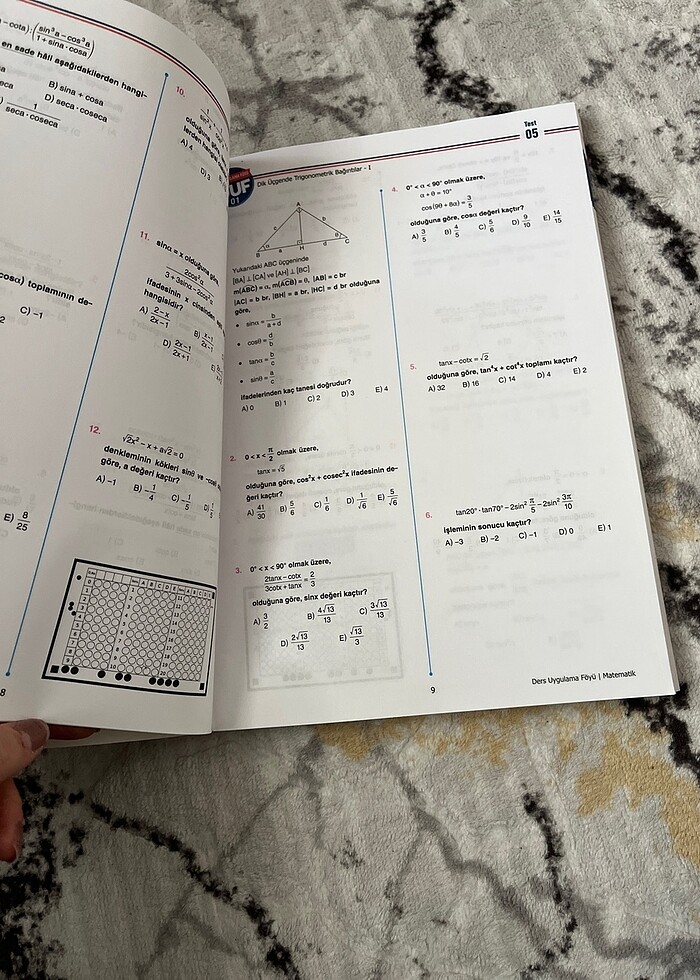 – cota) : (sin³a – cos³a / 1 + sina · cosa)
en sade hâli aşağıdakilerden hangi-
B) sina + cosa
D) seca · coseca
1 / seca · coseca
cosα) toplamının de-
C) –1
E) 8/25
8
10.
olduğuna göre,
lerden hangisi
A) 4
D) 3
11. sinα = x olduğuna göre,
2cos²α / 3 + 3sinα – 2cos²α
ifadesinin x cinsinden
hangisidir?
A) 2–x / 2x–1
B) x–1 / 2x–1
D) 2x–1 / 2x+1
12.
√2x² – x + a√2 = 0
denkleminin kökleri sinθ ve –cosθ
göre, a değeri kaçtır?
A) –1 B) –1/4 C) –1/5 D) 1/5
Test
05
UF
01
Dik Üçgende Trigonometrik Bağıntılar - I
A
c b
α θ
B a H d C
Yukarıdaki ABC üçgeninde
[BA] ⊥ [CA] ve [AH] ⊥ [BC]
m(ABC) = α, m(ACB) = θ, |AB| = c br
|AC| = b br, |BH| = a br, |HC| = d br olduğuna
göre,
• sinα = b / a + d
• cosθ = d / b
• tanα = b / c
• sinθ = a / c
ifadelerinden kaç tanesi doğrudur?
A) 0 B) 1 C) 2 D) 3 E) 4
2. 0 < x < π/2 olmak üzere,
tanx = √5
olduğuna göre, cos²x + cosec²x ifadesinin de-
ğeri kaçtır?
A) 41/30 B) 5/6 C) 1/6 D) 1/√6 E) 5/√6
3. 0° < x < 90° olmak üzere,
2tanx – cotx / 3cotx + tanx = 2/3
olduğuna göre, sinx değeri kaçtır?
A) 3/2 B) 4√13/13 C) 3√13/13
D) 2√13/13 E) √13/3
4. 0° < α < 90° olmak üzere,
α + θ = 10°
cos(9θ + 8α) = 3/5
olduğuna göre, cosα değeri kaçtır?
A) 3/5 B) 4/5 C) 5/6 D) 9/10 E) 14/15
5. tanx – cotx = √2
olduğuna göre, tan⁴x + cot⁴x toplamı kaçtır?
A) 32 B) 16 C) 14 D) 4 E) 2
6. tan20° · tan70° – 2sin² π/5 – 2sin² 3π/10
işleminin sonucu kaçtır?
A) –3 B) –2 C) –1 D) 0 E) 1
9
Ders Uygulama Föyü | Matematik